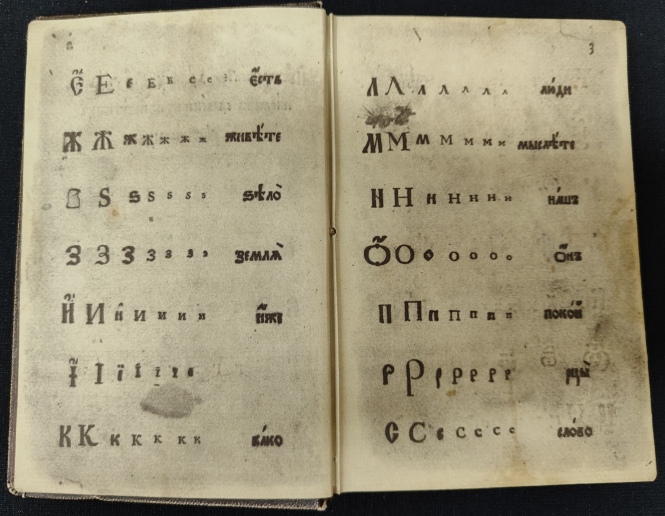 Е Е е Е е с с Е҆́сть
Ж Ж Ж Ж ж ж ж живѣ́те
Ѕ Ѕ Ѕ Ѕ Ѕ Ѕ Ѕѣлѡ̀
З З З З з з з земля̀
И И и И и и и и҆́же
І І ї і і і і
К К К К к к к ка́ко
3
Л Л л Л л л л лю́ди
М М М М м м м мыслѣ́те
Н Н н Н н н н на́шъ
Ѻ О о О о о о Ѻ҆́нъ
П П п П п п п поко́й
Р Р р Р р р р рцы̀
С С с С с с с сло́во